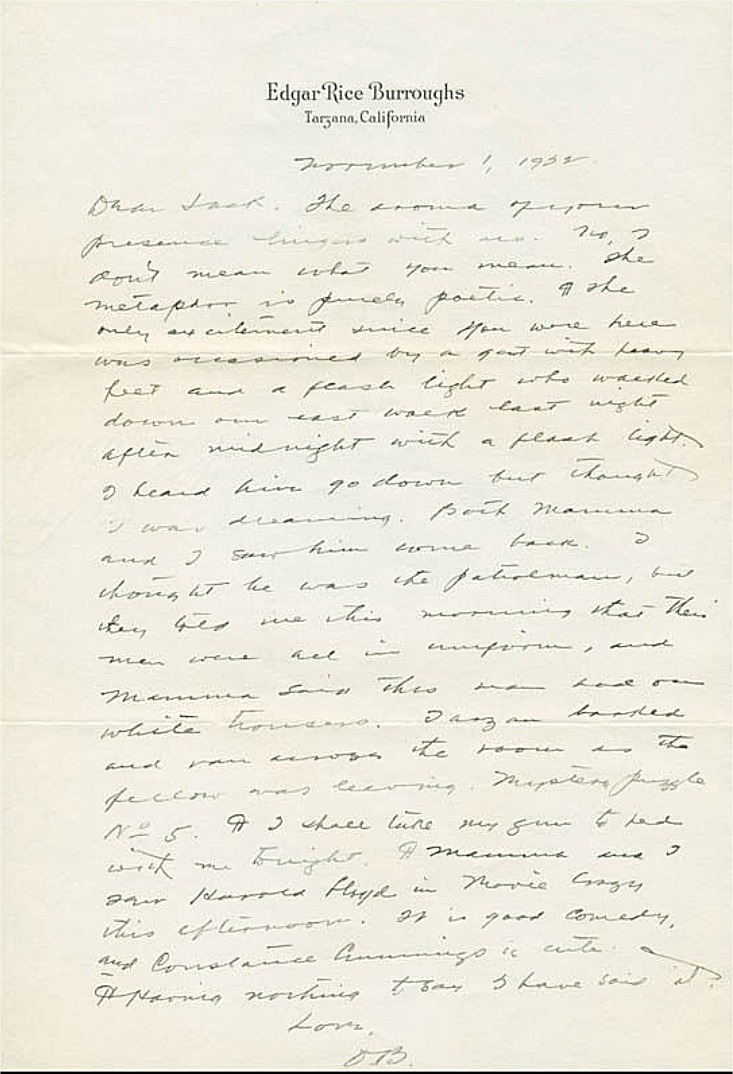 Edgar Rice Burroughs
Tarzana, California
November 1, 1932.
Dear Jack. The aroma of your
presence lingers with us. No, I
don't mean what you mean. The
metaphor is purely poetic. ¶ The
only excitement since you were here
was occasioned by a gent with heavy
feet and a flash light who walked
down our east walk last night
after midnight with a flash light.
I heard him go down but thought
I was dreaming. Both Mamma
and I saw him come back. I
thought he was the patrolman, but
they told me this morning that their
men were all in uniform, and
Mamma said this man had on
white trousers. Tarzan barked
and ran across the room as the
fellow was leaving. Mystery Puzzle
No 5. ¶ I shall take my gun to bed
with me tonight. ¶ Mamma and I
saw Harold Lloyd in Movie Crazy
this afternoon. It is good comedy,
and Constance Cummings is cute.
¶ Having nothing to say I have said it.
Love,
OB.